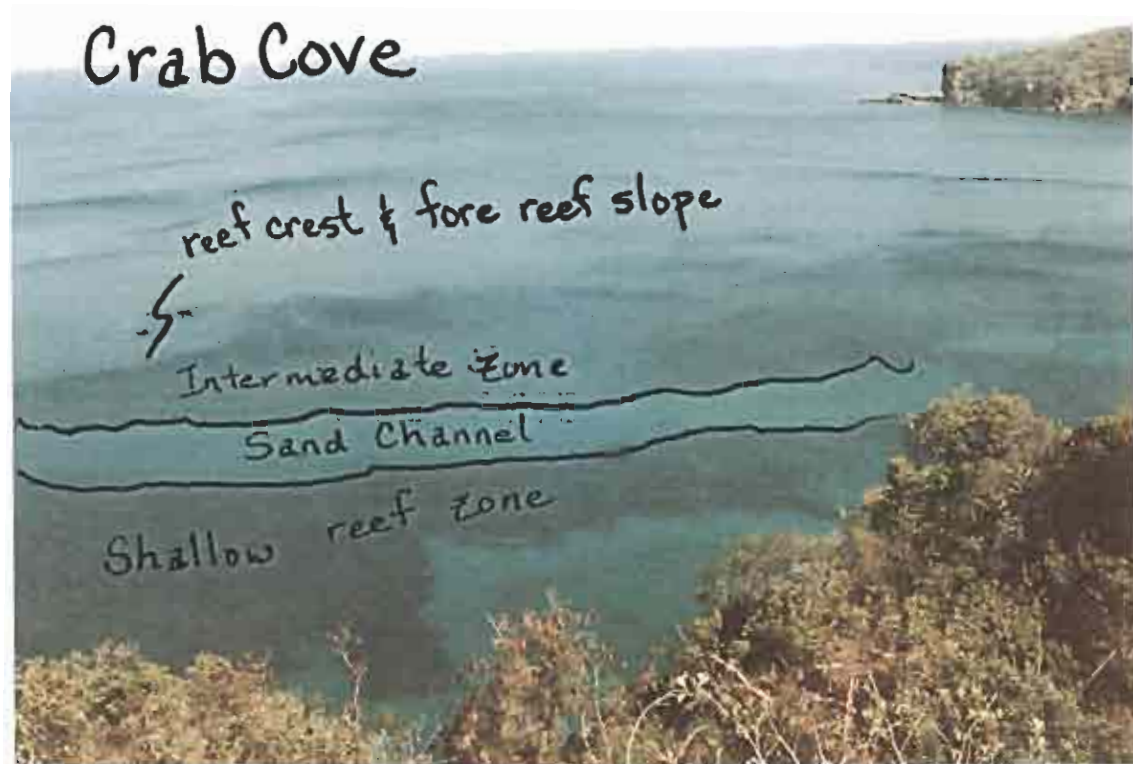 Crab Cove
reef crest & fore reef slope
Intermediate Zone
Sand Channel
Shallow reef zone